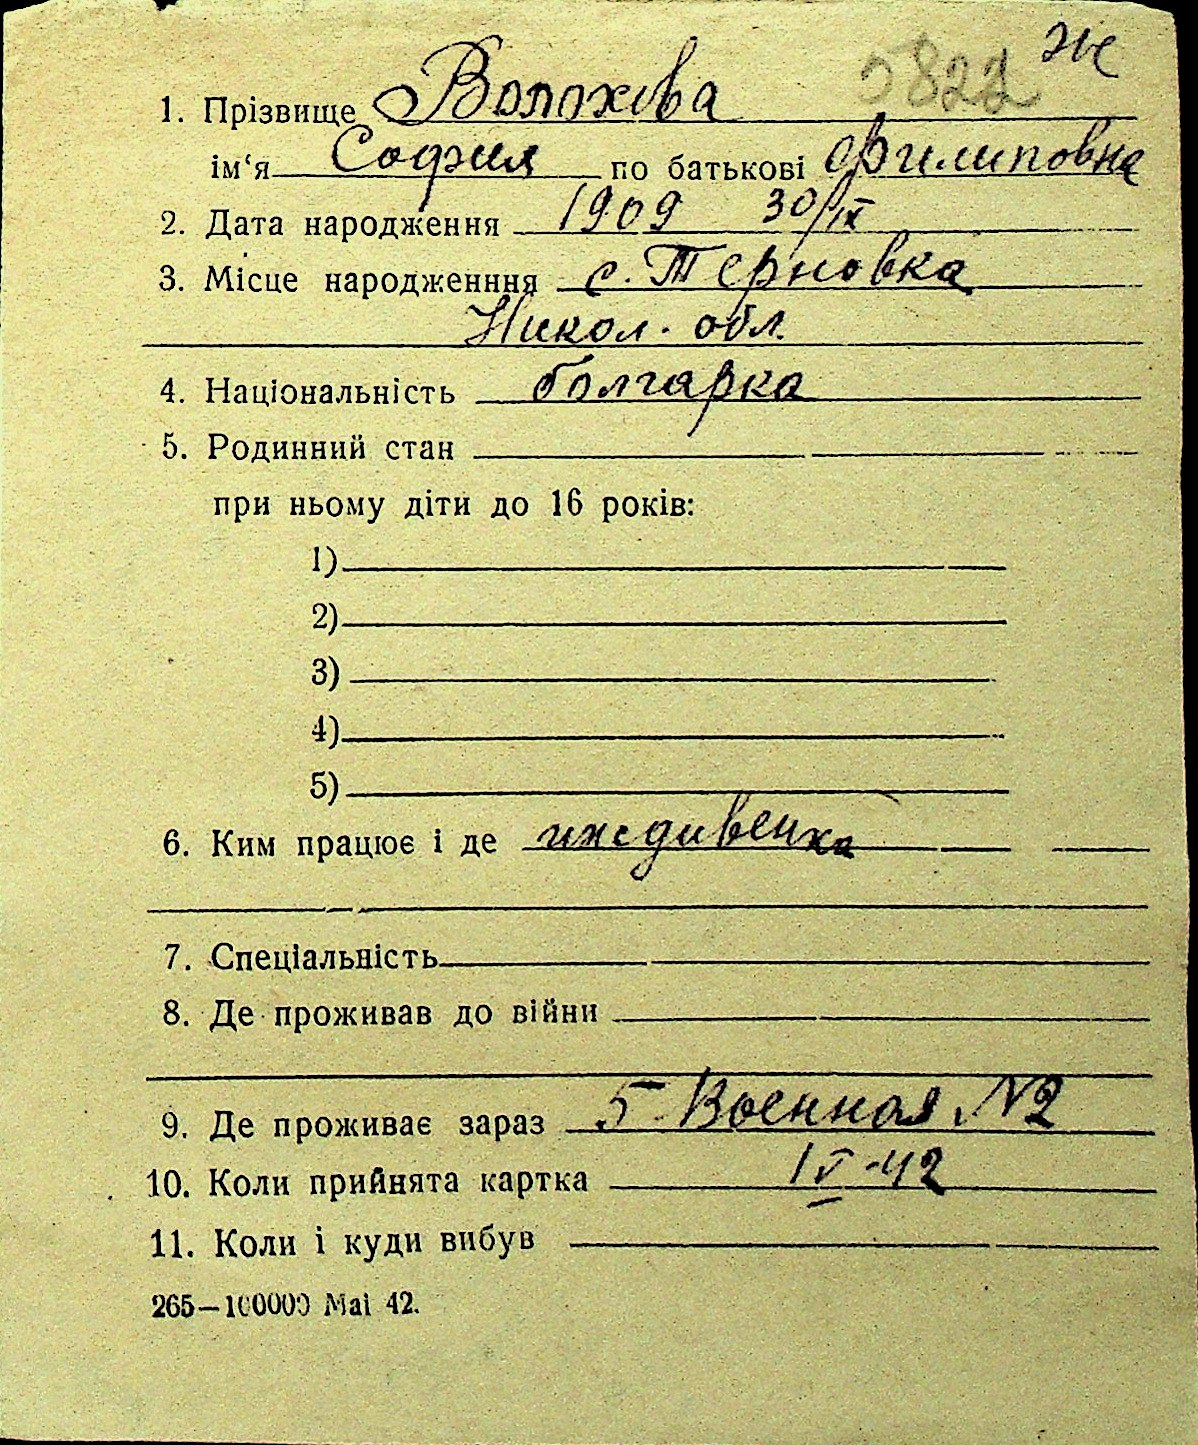 ж
5822
1. Прізвище Волохова
ім‘я София по батькові Филиповна
2. Дата народження 1909 30/IX
3. Місце народженння с. Терновка
Никол. обл.
4. Національність болгарка
5. Родинний стан
при ньому діти до 16 років:
1)
2)
3)
4)
5)
6. Ким працює і де иждивенка
7. Спеціальність
8. Де проживав до війни
9. Де проживає зараз 5 Военная №2
10. Коли прийнята картка IV-42
11. Коли і куди вибув
265—100000 Маі 42.